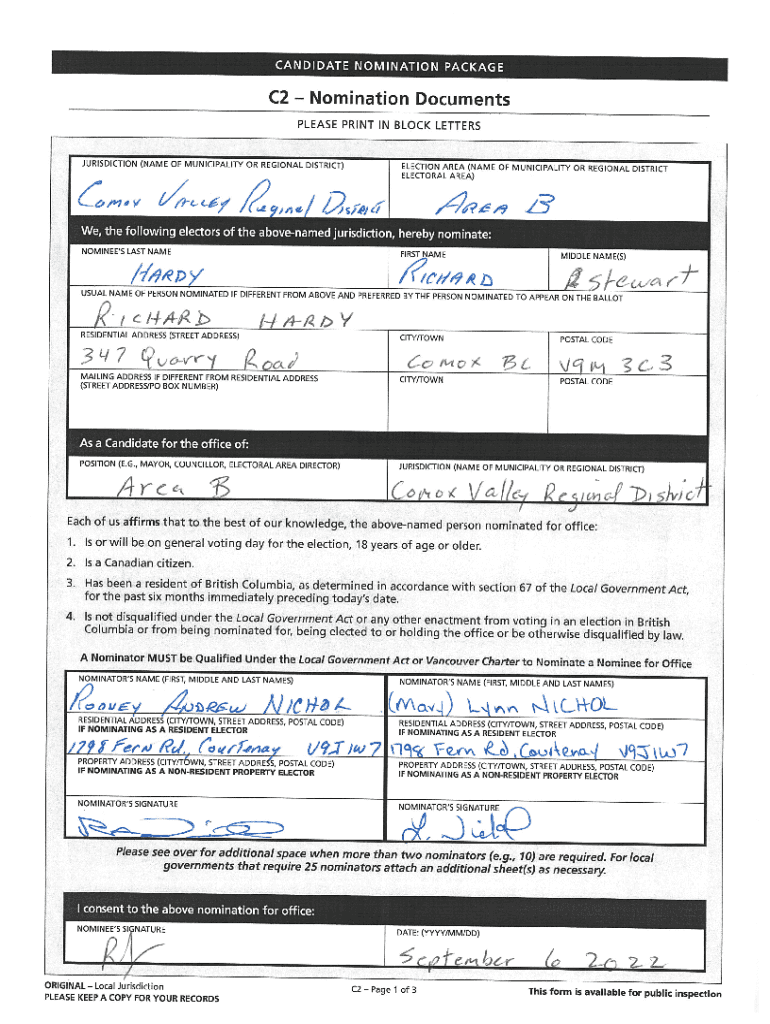 CANDIDATE NOMINATION PACKAGE
C2 – Nomination Documents
PLEASE PRINT IN BLOCK LETTERS
JURISDICTION (NAME OF MUNICIPALITY OR REGIONAL DISTRICT) ELECTION AREA (NAME OF MUNICIPALITY OR REGIONAL DISTRICT
ELECTORAL AREA)
COMOX VALLEY Reginal DISTRICT AREA B
We, the following electors of the above-named jurisdiction, hereby nominate:
NOMINEE'S LAST NAME FIRST NAME MIDDLE NAME(S)
HARDY RICHARD Stewart
USUAL NAME OF PERSON NOMINATED IF DIFFERENT FROM ABOVE AND PREFERRED BY THE PERSON NOMINATED TO APPEAR ON THE BALLOT
RICHARD HARDY
RESIDENTIAL ADDRESS (STREET ADDRESS) CITY/TOWN POSTAL CODE
347 Quarry Road COMOX BC V9M 3C3
MAILING ADDRESS IF DIFFERENT FROM RESIDENTIAL ADDRESS CITY/TOWN POSTAL CODE
(STREET ADDRESS/PO BOX NUMBER)
As a Candidate for the office of:
POSITION (E.G., MAYOR, COUNCILLOR, ELECTORAL AREA DIRECTOR) JURISDICTION (NAME OF MUNICIPALITY OR REGIONAL DISTRICT)
Area B Comox Valley Regional District
Each of us affirms that to the best of our knowledge, the above-named person nominated for office:
1. Is or will be on general voting day for the election, 18 years of age or older.
2. Is a Canadian citizen.
3. Has been a resident of British Columbia, as determined in accordance with section 67 of the Local Government Act,
for the past six months immediately preceding today's date.
4. Is not disqualified under the Local Government Act or any other enactment from voting in an election in British
Columbia or from being nominated for, being elected to or holding the office or be otherwise disqualified by law.
A Nominator MUST be Qualified Under the Local Government Act or Vancouver Charter to Nominate a Nominee for Office
NOMINATOR'S NAME (FIRST, MIDDLE AND LAST NAMES) NOMINATOR'S NAME (FIRST, MIDDLE AND LAST NAMES)
RODNEY ANDREW NICHOL (Mary) Lynn NICHOL
RESIDENTIAL ADDRESS (CITY/TOWN, STREET ADDRESS, POSTAL CODE) RESIDENTIAL ADDRESS (CITY/TOWN, STREET ADDRESS, POSTAL CODE)
IF NOMINATING AS A RESIDENT ELECTOR IF NOMINATING AS A RESIDENT ELECTOR
1798 Fern Rd, Courtenay V9J 1W7 1798 Fern Rd, Courtenay V9J1W7
PROPERTY ADDRESS (CITY/TOWN, STREET ADDRESS, POSTAL CODE) PROPERTY ADDRESS (CITY/TOWN, STREET ADDRESS, POSTAL CODE)
IF NOMINATING AS A NON-RESIDENT PROPERTY ELECTOR IF NOMINATING AS A NON-RESIDENT PROPERTY ELECTOR
NOMINATOR'S SIGNATURE NOMINATOR'S SIGNATURE
Please see over for additional space when more than two nominators (e.g., 10) are required. For local
governments that require 25 nominators attach an additional sheet(s) as necessary.
I consent to the above nomination for office:
NOMINEE'S SIGNATURE DATE: (YYYY/MM/DD)
September 6 2022
ORIGINAL – Local Jurisdiction
PLEASE KEEP A COPY FOR YOUR RECORDS C2 – Page 1 of 3 This form is available for public inspection